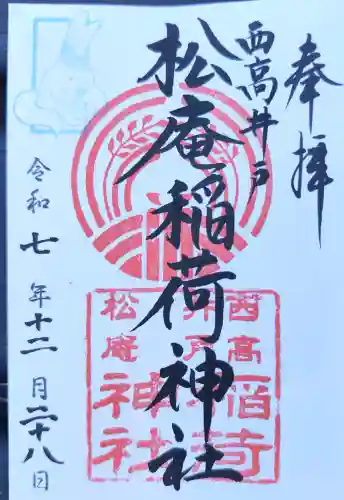 奉拝
西高井戸
松庵稲荷神社
西高
井戸
松庵
稲荷
神社
令和七年十二月二十八日